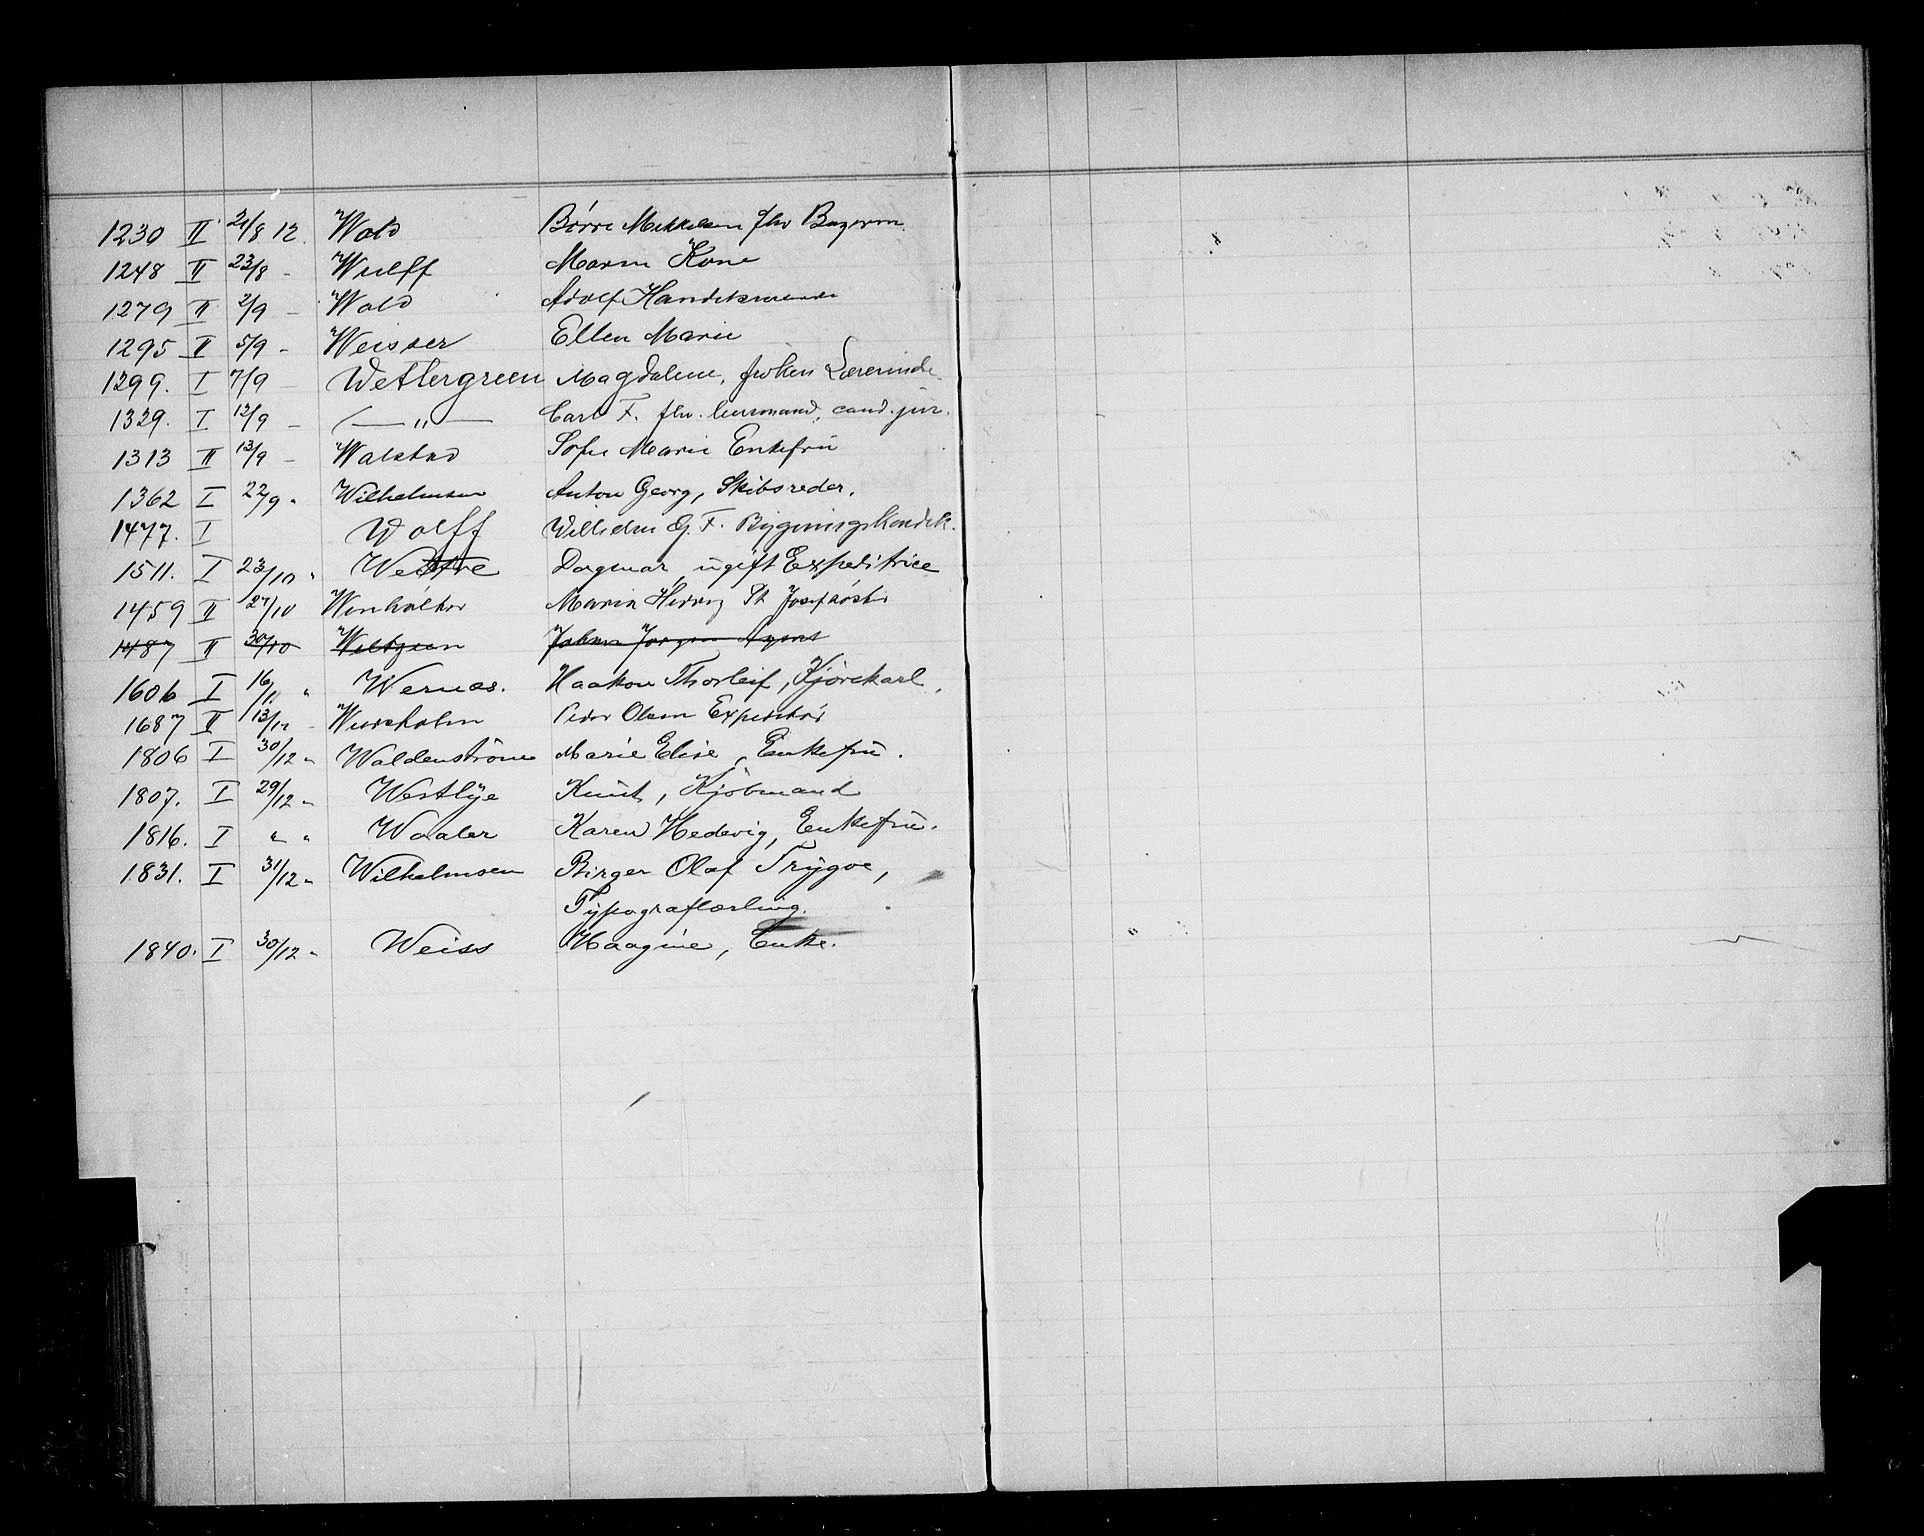 1230 II 21/8 12. Wold Børre Mikkelsen fhv
1248 II 23/8 - Wulff Maren Kone
1279 II 2/9 - Wold Adolf
1295 II 5/9 - Weisser Ellen Marie
1299. I 7/9 - Wettergreen Magdalene, frøken Lærerinde
1329. I 12/9 - — " — Carl F. fhv. cand. jur.
1313 II 13/9 - Walstad Sofie Marie Enkefru
1362 I 22/9 " Wilhelmsen Anton Georg, Skibsreder.
1477. I Wolff Wilhelm G. F. Bygningskondk.
1511. I 23/10 " Dagmar, ugift Expeditrice
1459 II 27/10 Maria
1487 II 30/10 Johan Jørgen Agent
1606 I 16/11 " Wernæs. Haakon Thorleif, Kjørekarl,
1687 II 13/12 - Peder Olsen Expeditør
1806 I 30/12 " Waldenstrøm Marie Elise, Enkefru.
1807. I 29/12 " Westlye Knut, Kjøbmand
1816. I " " Waaler Karen Hedevig, Enkefru.
1831. I 31/12 " Wilhelmsen Birger Olaf Trygve,
Typograflærling.
1840. I 30/12 " Weiss Haagine, Enke.